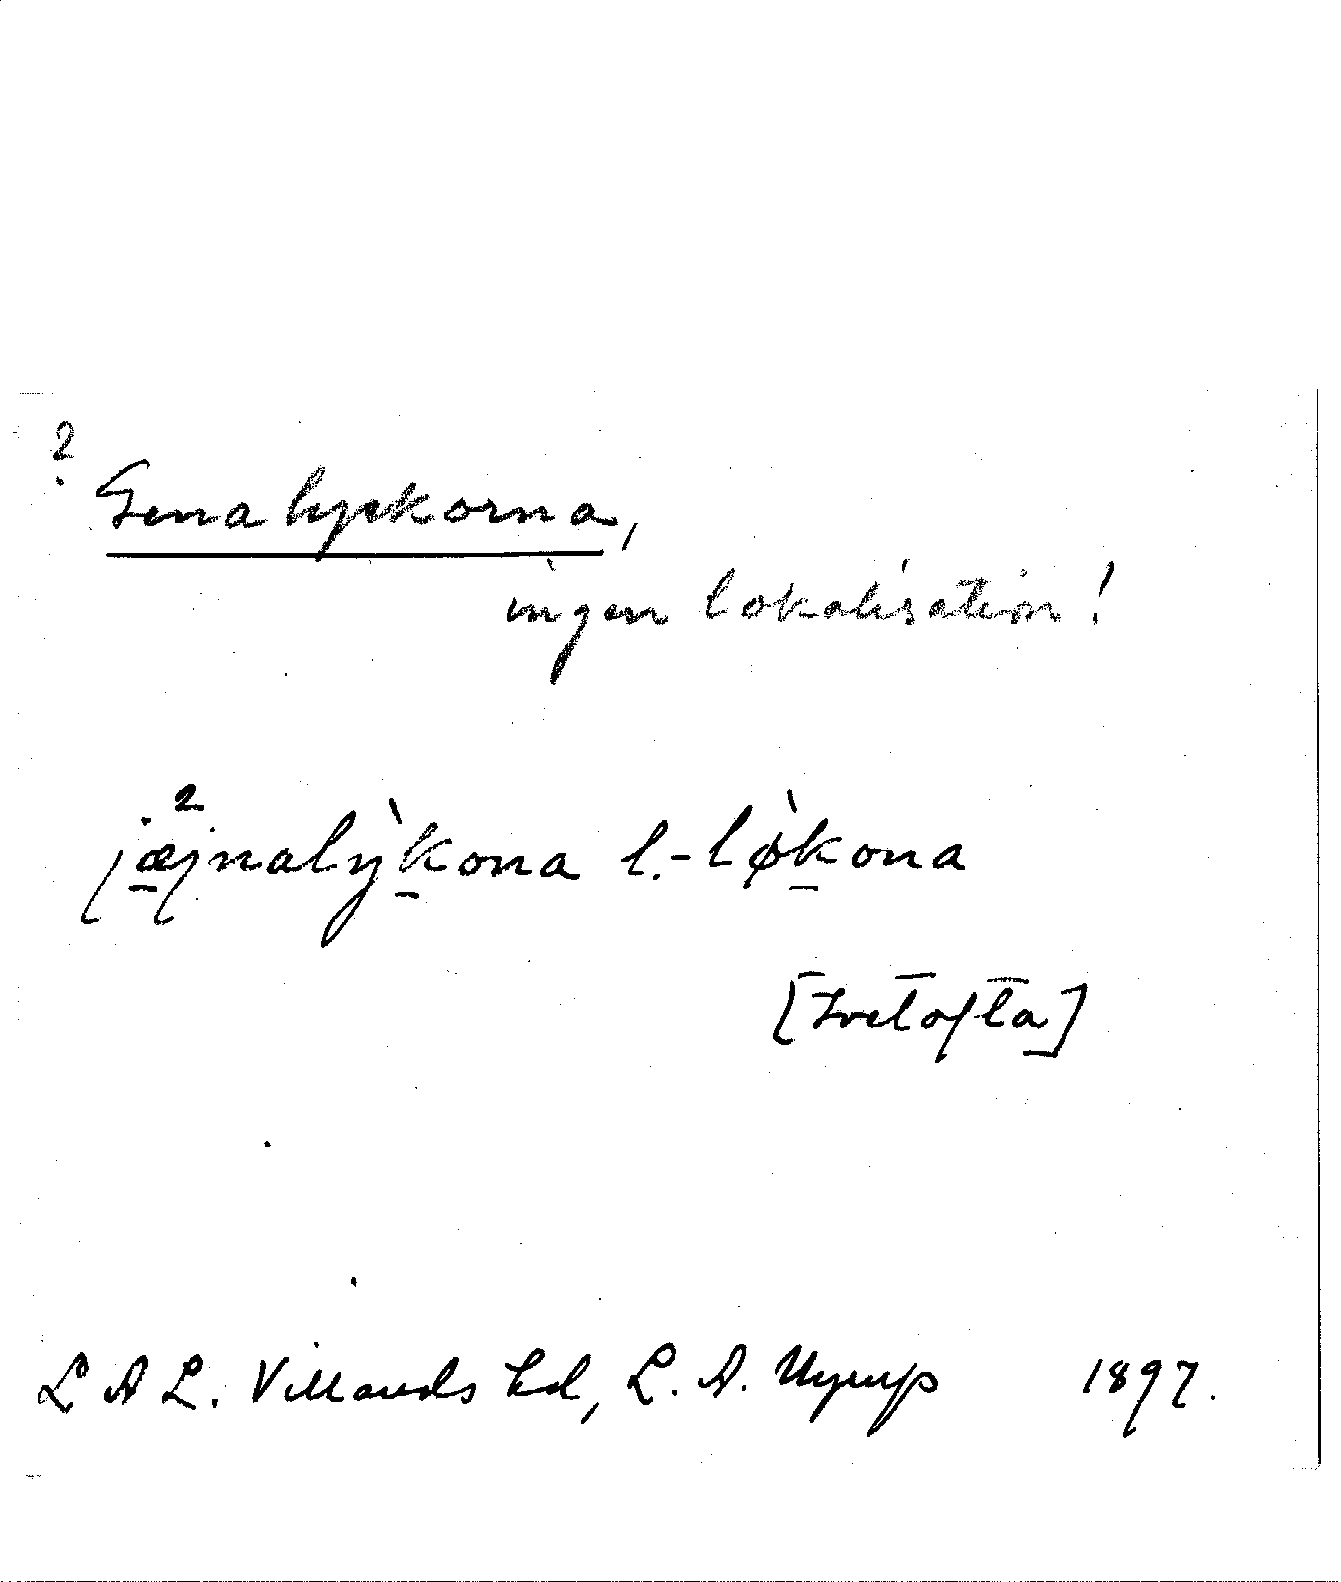 ?
Genalyckorna,
ingen lokalisation!
jæ²jnalỳkona l.-lø̀kona
[Ivetofta]
L A L. Villands hd, L. A. Nyrup 1897.